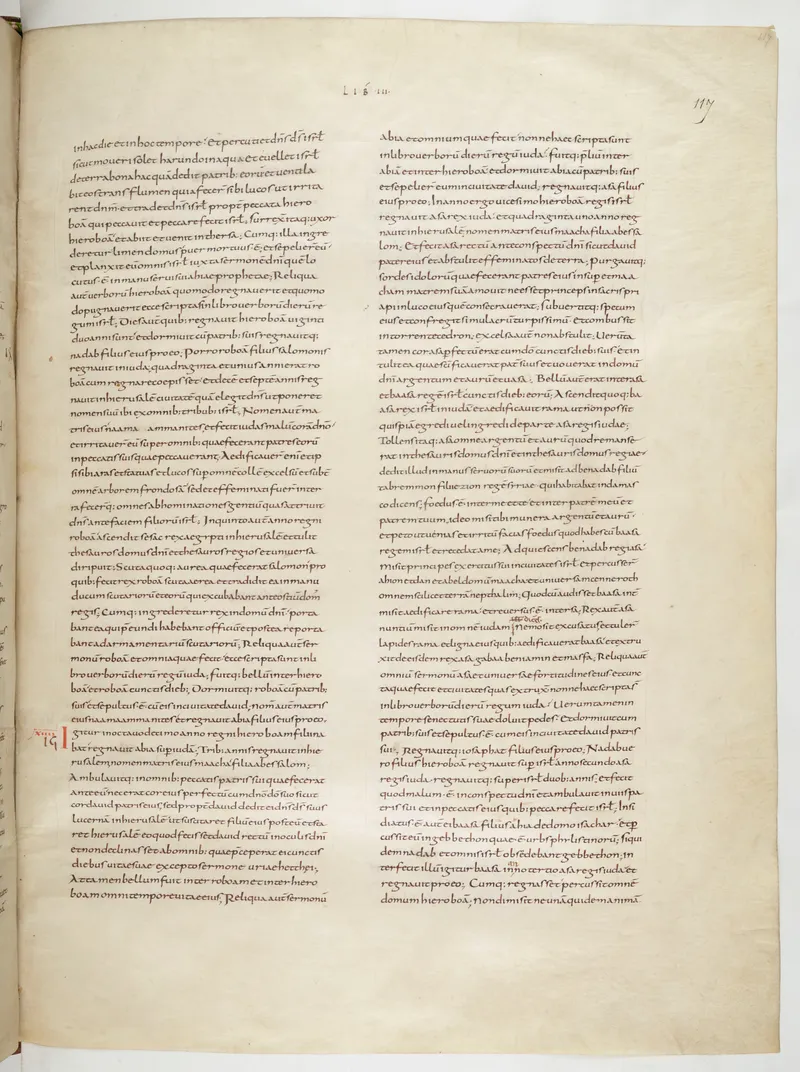 LIB III
117
inhac die et in hoc tempore; et percutiet dn̄s dſ iſrƚ
sicut moueri solet harundo in aqua et euellet isrƚ
de terra bona hac quā dedit patrib: eorū et uentila
bit eos trans flumen quia fecer̄ sibi lucos ut irrita
rent dnm̄. et tradet dn̄s isrƚ propt̄ peccata hiero
boā qui peccauit et peccare fecit isrƚ, Surrexit itaq: uxor
hieroboā et abiit et uenit in thersa; Cumq: illa ingre
deretur limen domus puer mortuus ē; et sepelierū
et planxit eū omnis isrƚ iuxta sermonē dni quē lo
cutus ē in manu serui sui ahiae prophetae; Reliqua
aut uerborū hieroboā quomodo regnauerit et quomo
do pugnauerit ecce scripta st̄ in libro uerborū dierū re
gum isrƚ; Dies aut̄ quib: regnauit hieroboā uiginti
duo anni sunt et dormiuit cū patrib: suis regnauitq:
nadab filius eius pro eo; Porro roboā filius salomonis
regnauit in iuda; quadraginta et unius anni erat ro
boā cum regnare coepisset et decē et septē annis reg
nauit in hierusalē ciuitatē quā elegit dn̄s ut poneret
nomen suū ibi ex omnib: tribub: isrƚ; Nomen aut̄ ma
tris eius naama ammanites et fecit iudas malū corā dno
et irritauer̄ eū super omnib: quae fecerant patres eorū
in peccatis suis quae peccauerant; Aedificauer̄ enī et ip
si sibi aras et statuas et lucos sup omnē collē excelsū et subt̄
omnē arborem frondosā sed et effeminati fuer̄ in ter
ra fecerq: omnes abhominationes gentiū quas attriuit
dn̄s ante faciem filiorū isrƚ; In quinto aut̄ anno regni
roboā ascendit sesac rex aegypti in hierusalē et tulit
thesauros domus dni et thesauros regios et uniuersa
diripuit; Scuta quoq: aurea quae fecerat salomon pro
quib: fecit rex roboā scuta aerea et tradidit ea in manu
ducum scutariorū et eorū qui excubabant ante ostiū dom̄
regis; Cumq: ingrederetur rex in domū dni porta
bant ea qui p̄eundi habebant officiū et postea reporta
bant ad armamentariū scutariorū; Reliqua aut̄ ser
monū roboā et omnia quae fecit ecce scripta sunt in li
bro uerborū dierū regū iuda; fuitq: bellū inter hiero
boā et roboā cunctis dieb; Dormiuitq: roboā cū patrib:
suis et sepultus ē cū eis in ciuitate dauid, nom̄ aut̄ matris
eius naama ammanites et regnauit abia filius eius pro eo,
Igitur in octauo decimo anno regni hieroboam filii na
bat regnauit abia sup iudā; Trib: annis regnauit in hie
rusalem, nomen matris eius maacha filia abessalom;
Ambulauitq: in omnib: peccatis patris sui quae fecerat
ante eū nec erat cor eius perfectū cum dno dō suo sicut
cor dauid patris eius, sed propt̄ dauid dedit ei dn̄s ds̄ suus
lucernā in hierusalē ut suscitaret filiū eius post eū et sta
ret hierusalē eo quod fecisset dauid rectū in oculis dni
et non declinasset ab omnib: quae p̄ceperat ei cunctis
diebus uitae suae excepto sermone uriae hetthei;
Attamen bellum fuit inter roboam et inter hiero
boam omni tempore uitae eius; Reliqua aut̄ sermonū
Abia et omnium quae fecit nonne haec scripta sunt
in libro uerborū dierū regū iuda; fuitq: p̄liū inter
abiā et inter hieroboā et dormiuit abia cū patrib: suis
et sepelier̄ eum in ciuitate dauid; regnauitq: asa filius
eius pro eo; In anno ergo uicesimo hieroboā regis isrƚ
regnauit asa rex iuda; et quadraginta uno anno reg
nauit in hierusalē, nomen matris eius maacha filia abessa
lom; Et fecit asa rectū ante conspectū dni sicut dauid
pater eius et abstulit effeminatos de terra; Purgauitq:
sordes idolorū quae fecerant patres eius insup et maa
cham matrem suā amouit ne esset princeps in sacris pri
api in luco eius quē consecrauerat; subuertitq: specum
eius et confregit simulacrū turpissimū et combussit
in torrente cedron; excelsa aut̄ non abstulit; Ueruta
tamen cor asa pfectū erat cum dō cunctis dieb: suis et in
tulit ea quae sc̄ificauerat pat̄ suus et uouerat in domū
dni argentum et aurū et uasa; Bellū aut̄ erat inter asa
et baasa regē isrƚ cunctis dieb: eorū; Ascendit quoq: ba
asa rex isrƚ in iudā et aedificauit rama ut non possit
quispiā egredi uel ingredi de parte asa regis iudae;
Tollens itaq: asa omne argentū et aurū quod remanse
rat in thesauris domus dni et in thesauris domus regiae
dedit illud in manus seruorū suorū et misit ad benadab filiū
tabremmon filii ezion regē syriae qui habitabat in damas
co dicens; foedus ē inter me et te et inter patrē meū et
patrem tuum, ideo misi tibi munera argentū et aurū
et peto ut uenias et irritū facias foedus quod habes cū baasa
rege isrƚ et recedat a me; Adquiescens benadab regi asa
misit principes exercitus sui in ciuitates isrƚ et percusser̄
ahion et dan et abel domū maacha et uniuersā cenneroth
omnem scilicet terrā nepthalim; Quod cū audisset baasa int̄
misit aedificare rama et reuersus ē in thersa; Rex aut̄ asa
nuntiū misit in omnē iudam nemo sit excusatus et tuler̄
lapides rama et ligna eius quib: aedificauerat baasa et extru
xit de eis dem rex asa gabaa beniamin et maspha; Reliqua aut̄
omniū sermonū asa et uniuersae fortitudines eius et cunc
ta quae fecit et ciuitates quas extruxit nonne haec scripta st̄
in libro uerborū dierū regum iuda; Uerumtamen in
tempore senectutis suae doluit pedes; Et dormiuit cum
patrib: suis et sepultus ē cum eis in ciuitate dauid patris
sui. Regnauitq: iosaphat filius eius pro eo; Nadab ue
ro filius hieroboā regnauit sup isrƚ anno secundo asa
regis iuda regnauitq: super isrƚ duob: annis; et fecit
quod malum ē in conspectu dni et ambulauit in uiis pa
tris sui et in peccatis eius quib: peccare fecit isrƚ, Insi
diatus ē aut̄ ei baasa filius ahia de domo isachar et p
cussit eū in gebbethon quae ē urbs philistinorū; siqui
dem nadab et omnis isrƚ obsidebant gebbethon; in
terfecit illū igitur baasa in anno tertio asa regis iuda et
regnauit pro eo; Cumq: regnasset percussit omnē
domum hieroboā; non dimisit ne unā quidem animā